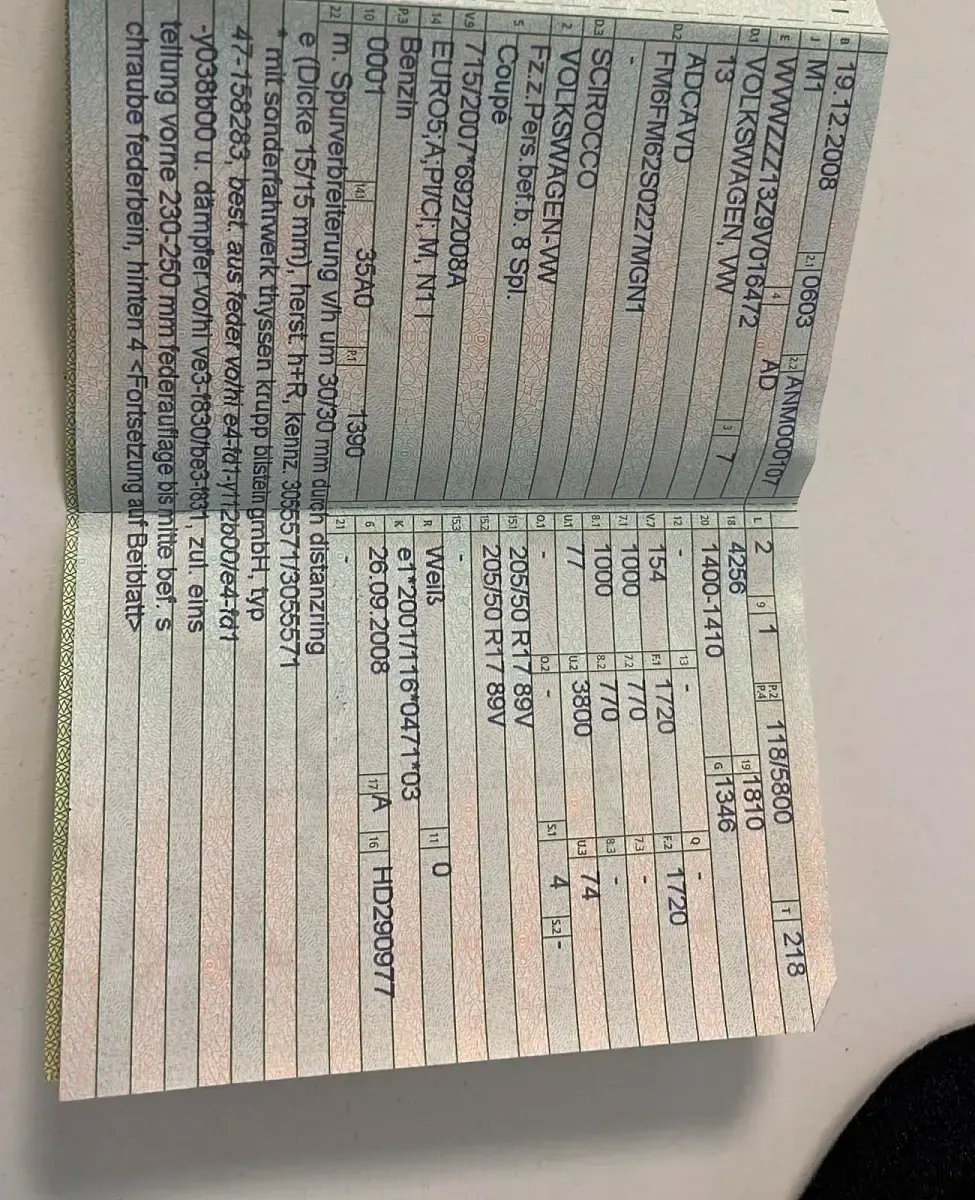 B 19.12.2008 2.1 0603 2.2 ANM000107
J M1 4 AD
E WVWZZZ13Z9V016472 3 7
D.1 VOLKSWAGEN, VW
13
D.2 ADCAVD
FM6FM62S0227MGN1
-
D.3 SCIROCCO
2 VOLKSWAGEN-VW
5 Fz.z.Pers.bef.b. 8 Spl.
Coupe
V.9 715/2007*692/2008A
14 EURO5;A;PI/CI; M, N1 I
P.3 Benzin
10 0001 14.1 35A0 P.1 1390
L 2 9 1 P.2 P.4 118/5800 T 218
18 4256 19 1810
20 1400-1410 G 1346
12 - 13 - Q -
V.7 154 F.1 1720 F.2 1720
7.1 1000 7.2 770 7.3 -
8.1 1000 8.2 770 8.3 -
U.1 77 U.2 3800 U.3 74
O.1 - O.2 - S.1 4 S.2 -
15.1 205/50 R17 89V
15.2 205/50 R17 89V
15.3 -
R Weiß 11 0
K e1*2001/116*0471*03
6 26.09.2008 17 A 16 HD290977
21 -
22 m. Spurverbreiterung v/h um 30/30 mm durch distanzring
e (Dicke 15/15 mm), herst. h+R, kennz. 3055571/3055571
* mit sonderfahrwerk thyssen krupp bilstein gmbH, typ
47-158283, best. aus feder vo/hi e4-fd1-y112b00/e4-fd1
-y038b00 u. dämpfer vo/hi ve3-f830/be3-f831, zul. eins
tellung vorne 230-250 mm federauflage bis mitte bef. s
chraube federbein, hinten 4 <Fortsetzung auf Beiblatt>